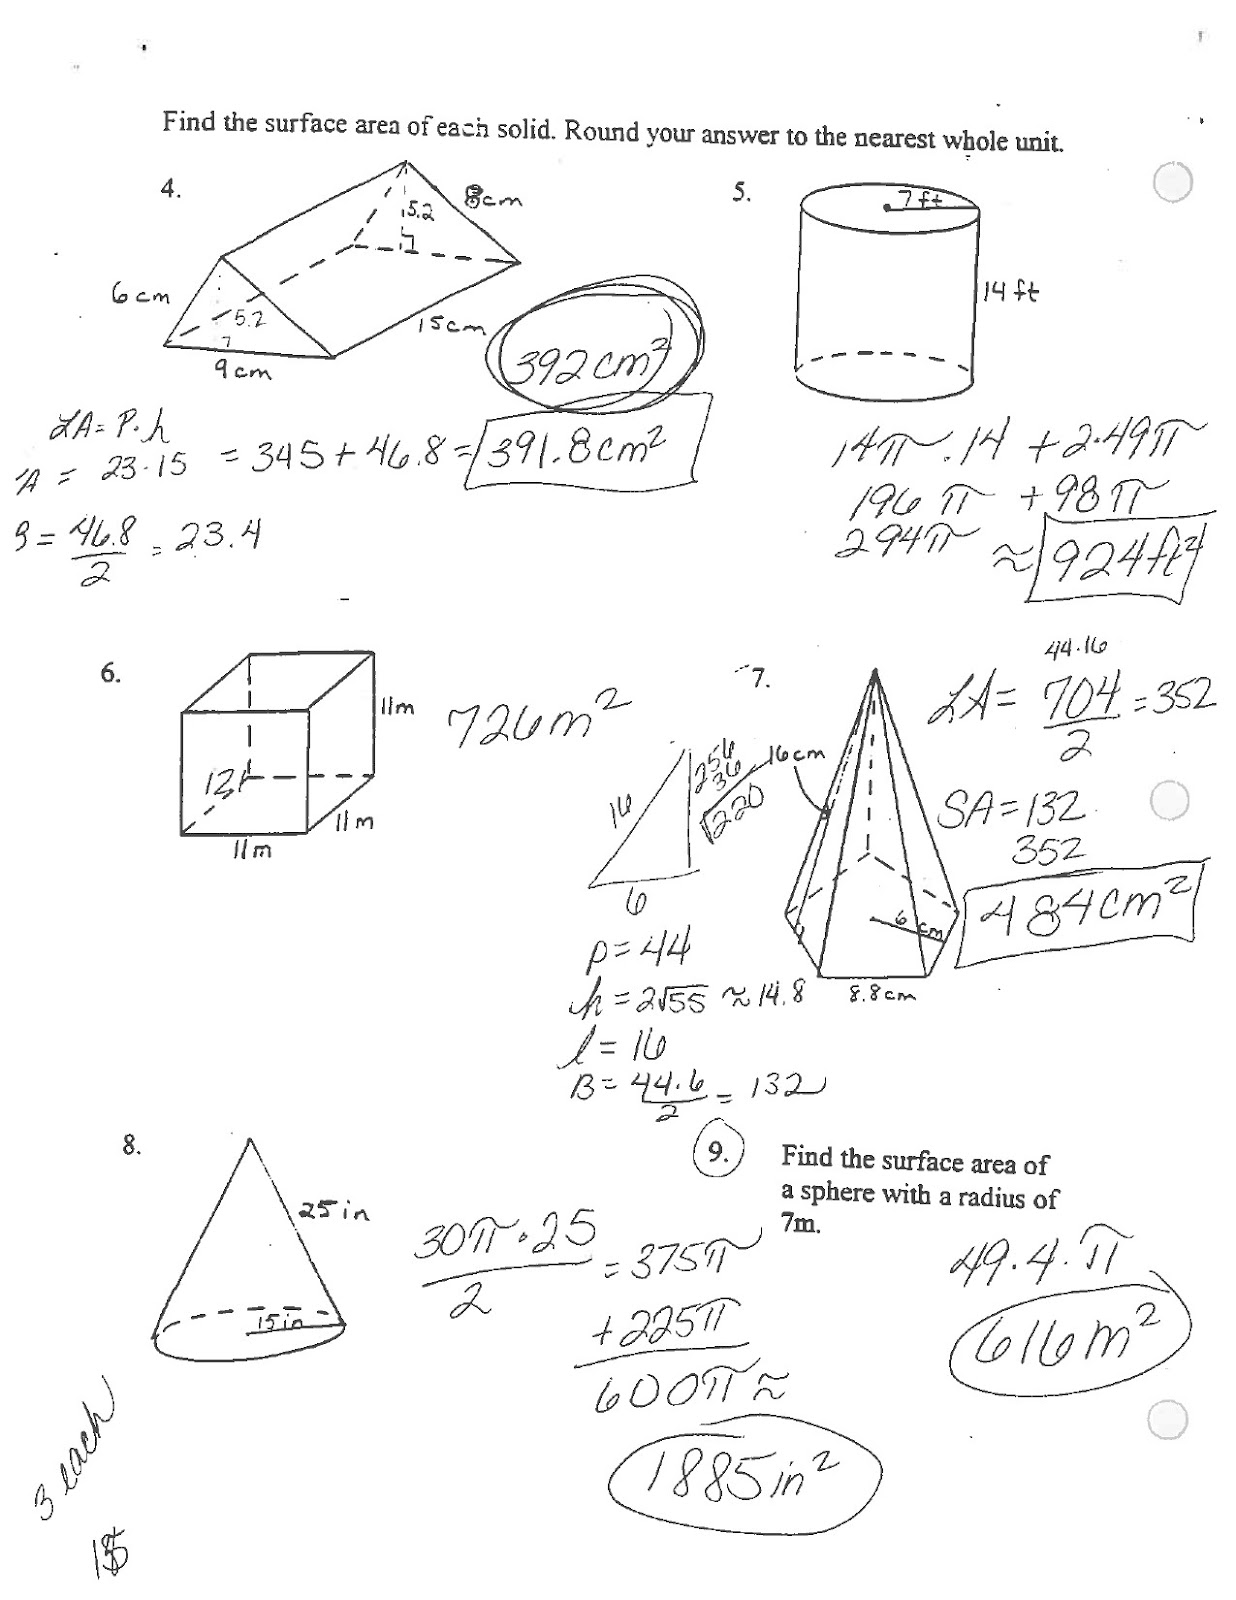 Find the surface area of each solid. Round your answer to the nearest whole unit.
4.
8cm
5.2
6cm
5.2
9cm
15cm
392cm²
LA = P·h
A = 23·15 = 345 + 46.8 = 391.8cm²
B = 46.8/2 = 23.4
5.
7ft
14 ft
14π·14 + 2·49π
196π + 98π
294π ≈ 924ft²
6.
11m
11m
11m
726m²
7.
16cm
6 cm
8.8cm
44·16
LA = 704/2 = 352
SA = 132
352
484cm²
16
6
256
36
√220
P = 44
h = 2√55 ≈ 14.8
l = 16
B = 44·6/2 = 132
8.
25 in
15 in
30π·25/2 = 375π
+225π
600π ≈
1885in²
9.
Find the surface area of
a sphere with a radius of
7m.
49·4·π
616m²
3 each